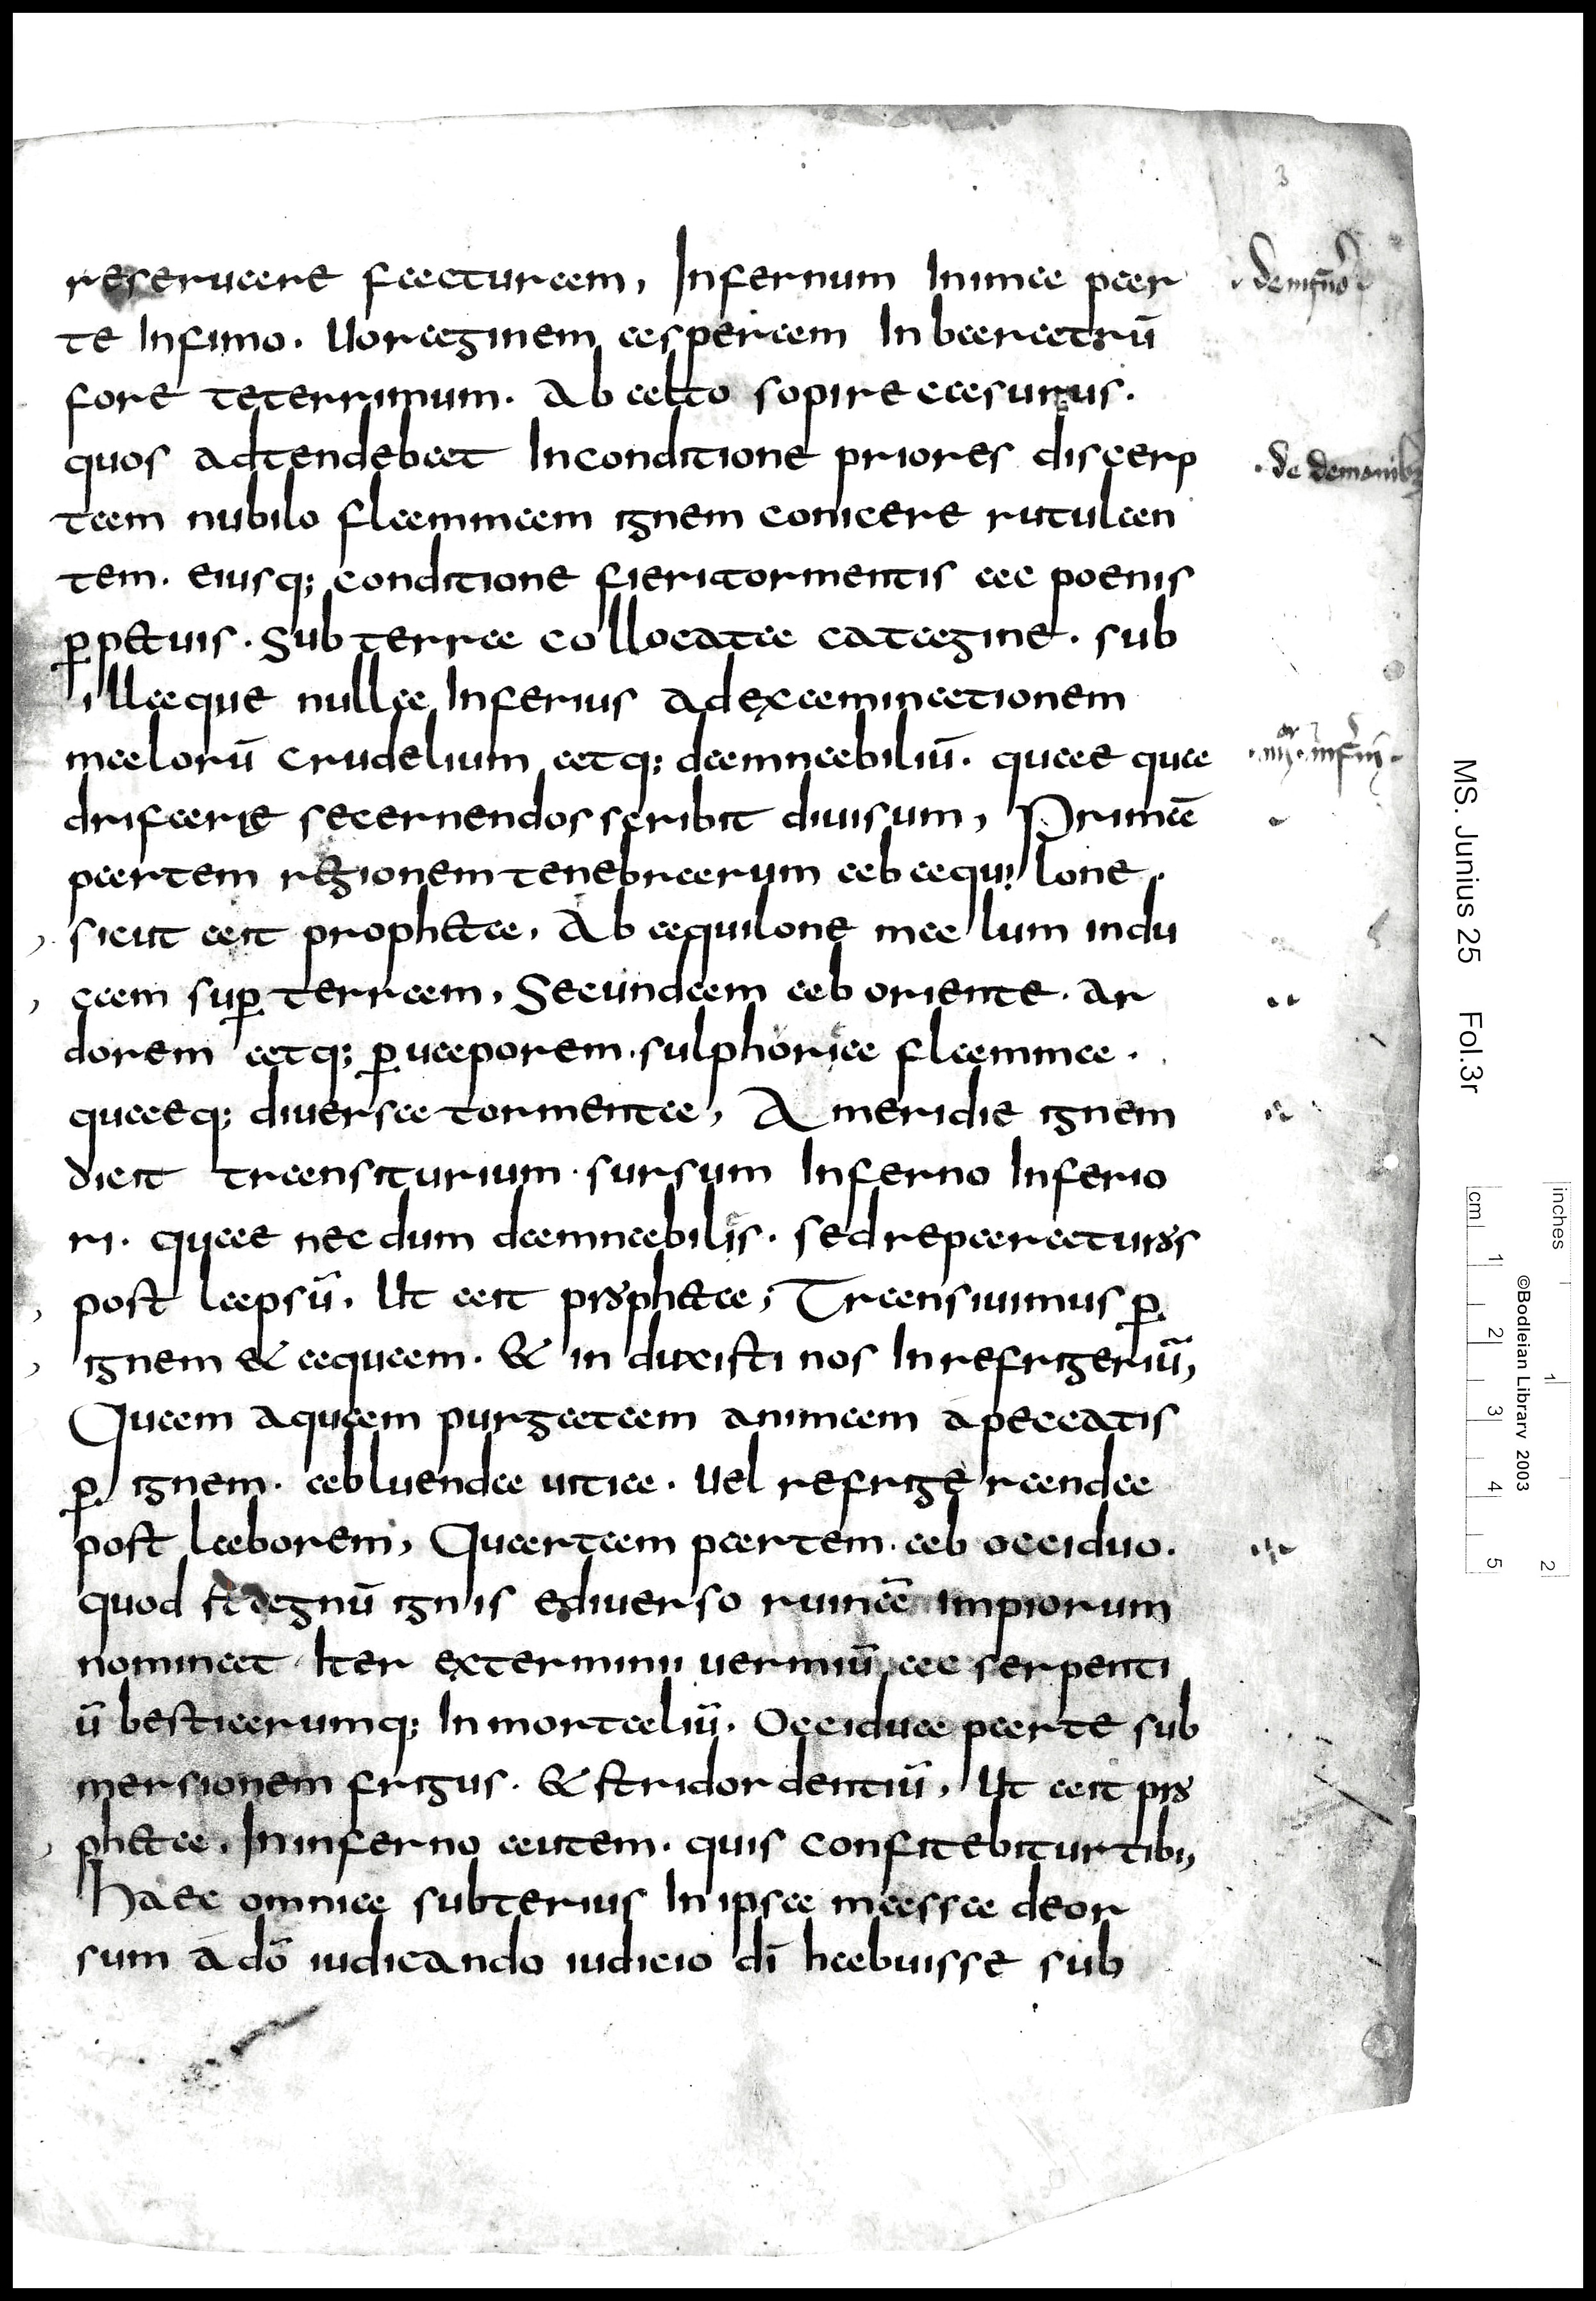 reseruare facturam, Infernum In ima par
te Infimo. Uoraginem asperam In baratrū
fore teterrimum. Ab alto sopire casurus.
quos adtendebat In conditione priores discerp
tam nubilo flammam ignem conicere rutulan
tem. eiusq; conditione fieri tormentis ac poenis
p̱petuis. Sub terra collocata cataegine. sub
illaque nulla Inferius ad examinationem
malorū crudelium atq; damnabiliū. quae qua
drifarie secernendos scribit diuisum, Primā
partem regionem tenebrarum ab aquilone.
sicut ait propheta, Ab aquilone malum indu
cam sup̱ terram, Secundam ab oriente. ar
dorem atq; p̱ uaporem. sulphoria flamma.
quaeq; diuersa tormenta, A meridie ignem
dicit transiturium. sursum Inferno Inferio
ri. quae nec dum damnabilis. sed reparaturos
post lapsū. Ut ait propheta; Transiuimus p̱
ignem & aquam. & in duxisti nos In refrigeriū,
Quam aquam purgatam animam a peccatis
p̱ ignem. abluenda uitia. uel refrigeranda
post laborem, Quartam partem. ab occiduo.
quod stagnū ignis ediuerso ruinā impiorum
nominat Iter exterminii uermiū ac serpenti
ū bestiarumq; Inmortaliū. Occidua parte sub
mersionem frigus. & stridor dentiū, Ut ait pro
pheta, In inferno autem. quis confitebitur tibi,
Haec omnia subterius In ipsa massa deor
sum a dō iudicando iudicio dī habuisse sub
3
de demonibꝫ
MS. Junius 25 Fol.3r
inches 1 2
©Bodleian Library 2003
cm 1 2 3 4 5